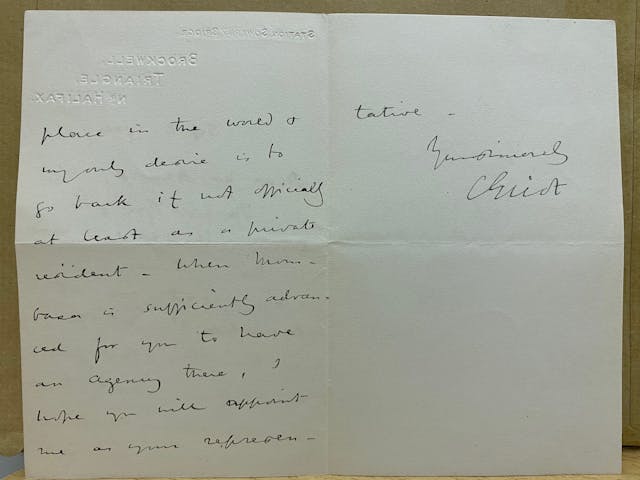 STATION, SOWERBY BRIDGE.
BROCKWELL,
TRIANGLE,
Nr. HALIFAX.
place in the world &
my only desire is to
go back if not officially
at least as a private
resident – When Mom-
basa is sufficiently advan-
ced for you to have
an agency there, I
hope you will appoint
me as your represen-
tative –
Yours sincerely
CEliot